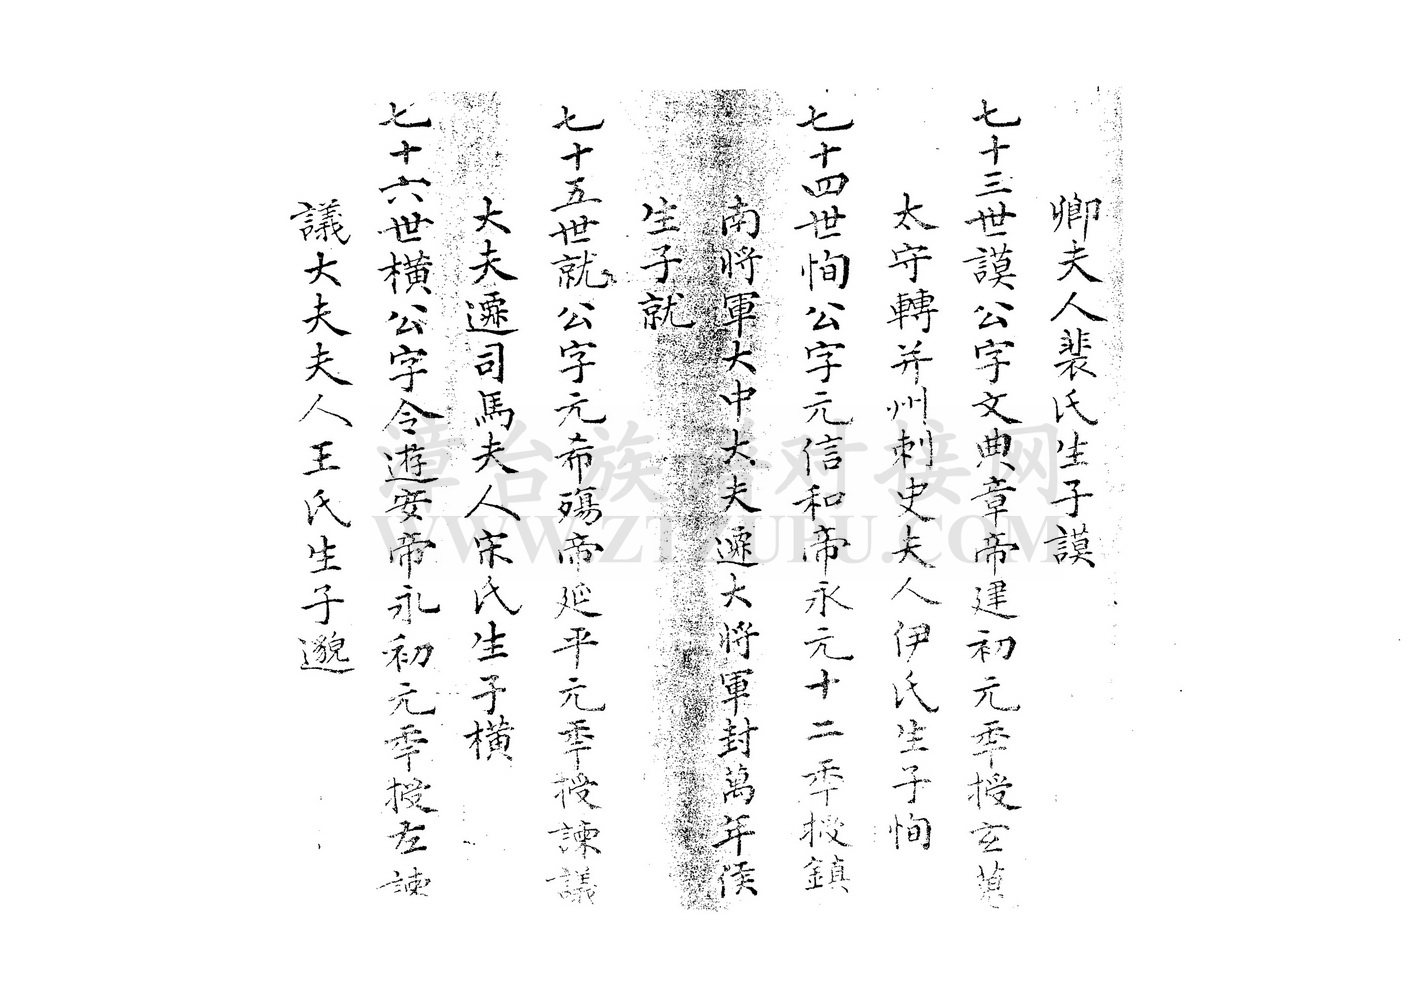 卿夫人裴氏生子謨
七十三世謨公字文典章帝建初元秊授玄菟
太守轉并州刺史夫人伊氏生子恂
七十四世恂公字元信和帝永元十二秊授鎮
南將軍大中大夫遷大將軍封萬年侯
生子就
七十五世就公字元希殤帝延平元秊授諫議
大夫遷司馬夫人宋氏生子橫
七十六世橫公字令遊安帝永初元秊授左諫
議大夫夫人王氏生子邈
漳台族谱对接网
WWW.ZTZUPU.COM